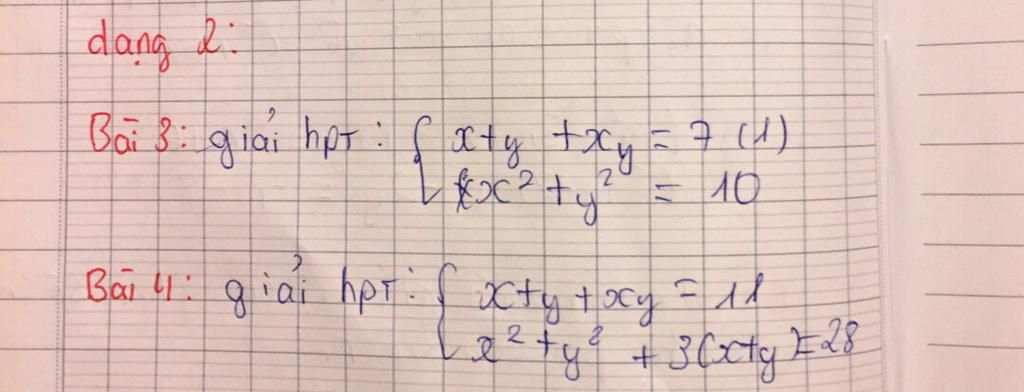 dạng 2:
Bài 3: giải hpT: { x+y +xy = 7 (1)
x² + y² = 10
Bài 4: giải hpT: { x+y+xy = 11
x² + y² + 3(x+y) = 28